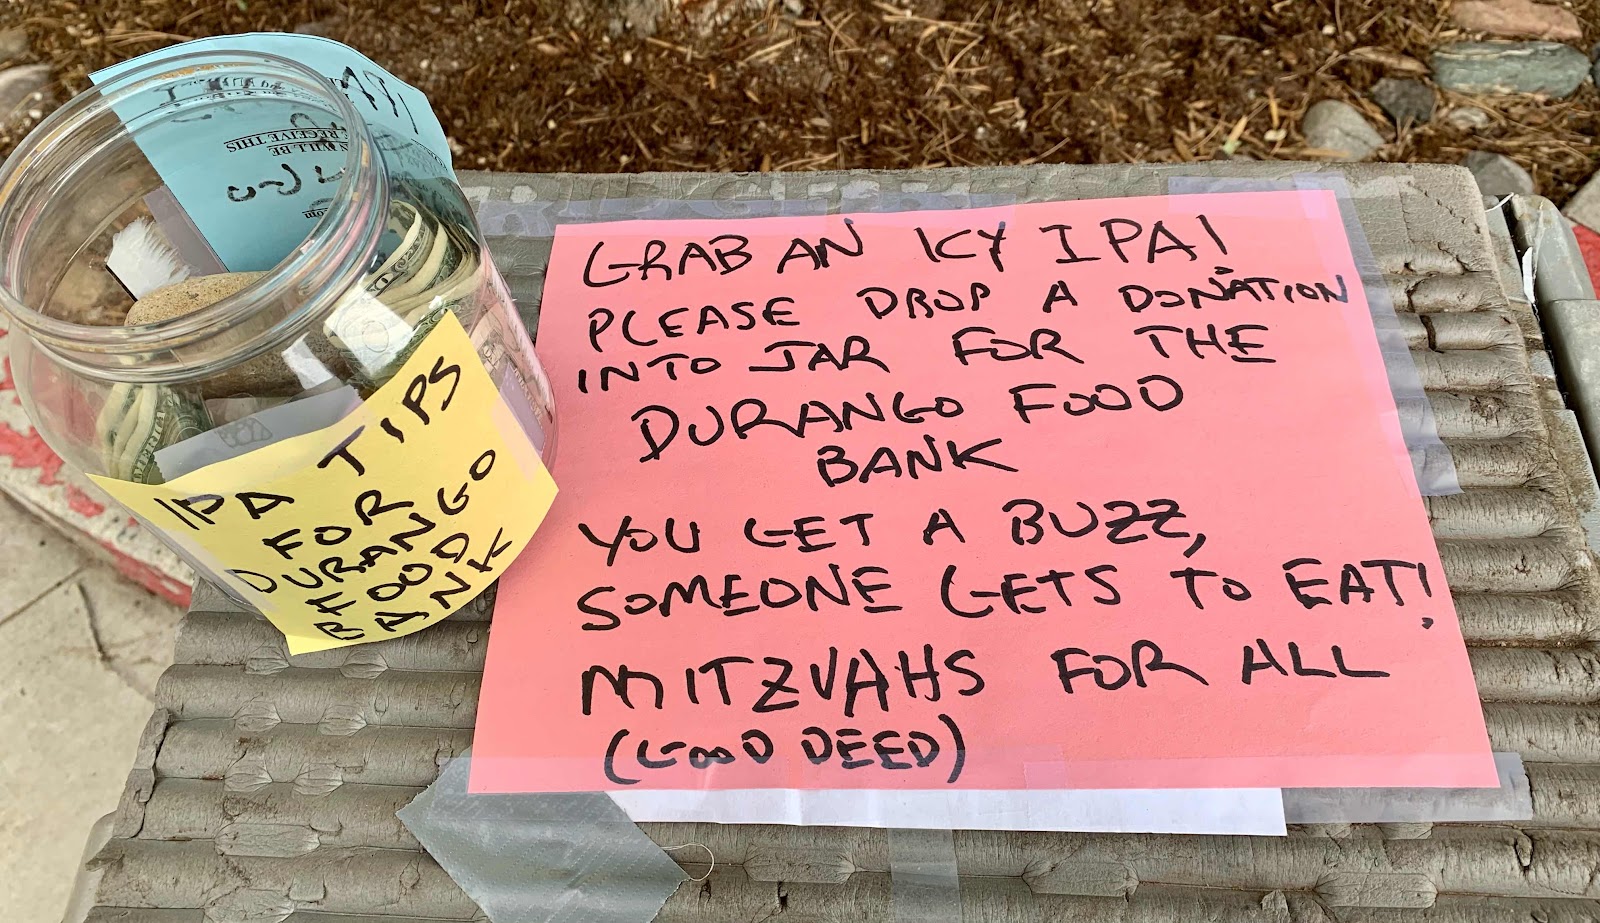 GRAB AN ICY IPA!
PLEASE DROP A DONATION
INTO JAR FOR THE
DURANGO FOOD
BANK
YOU GET A BUZZ,
SOMEONE GETS TO EAT!
MITZVAHS FOR ALL
(GOOD DEED)
IPA TIPS
FOR
DURANGO
FOOD
BANK
WILL BE
RECEIVE THIS